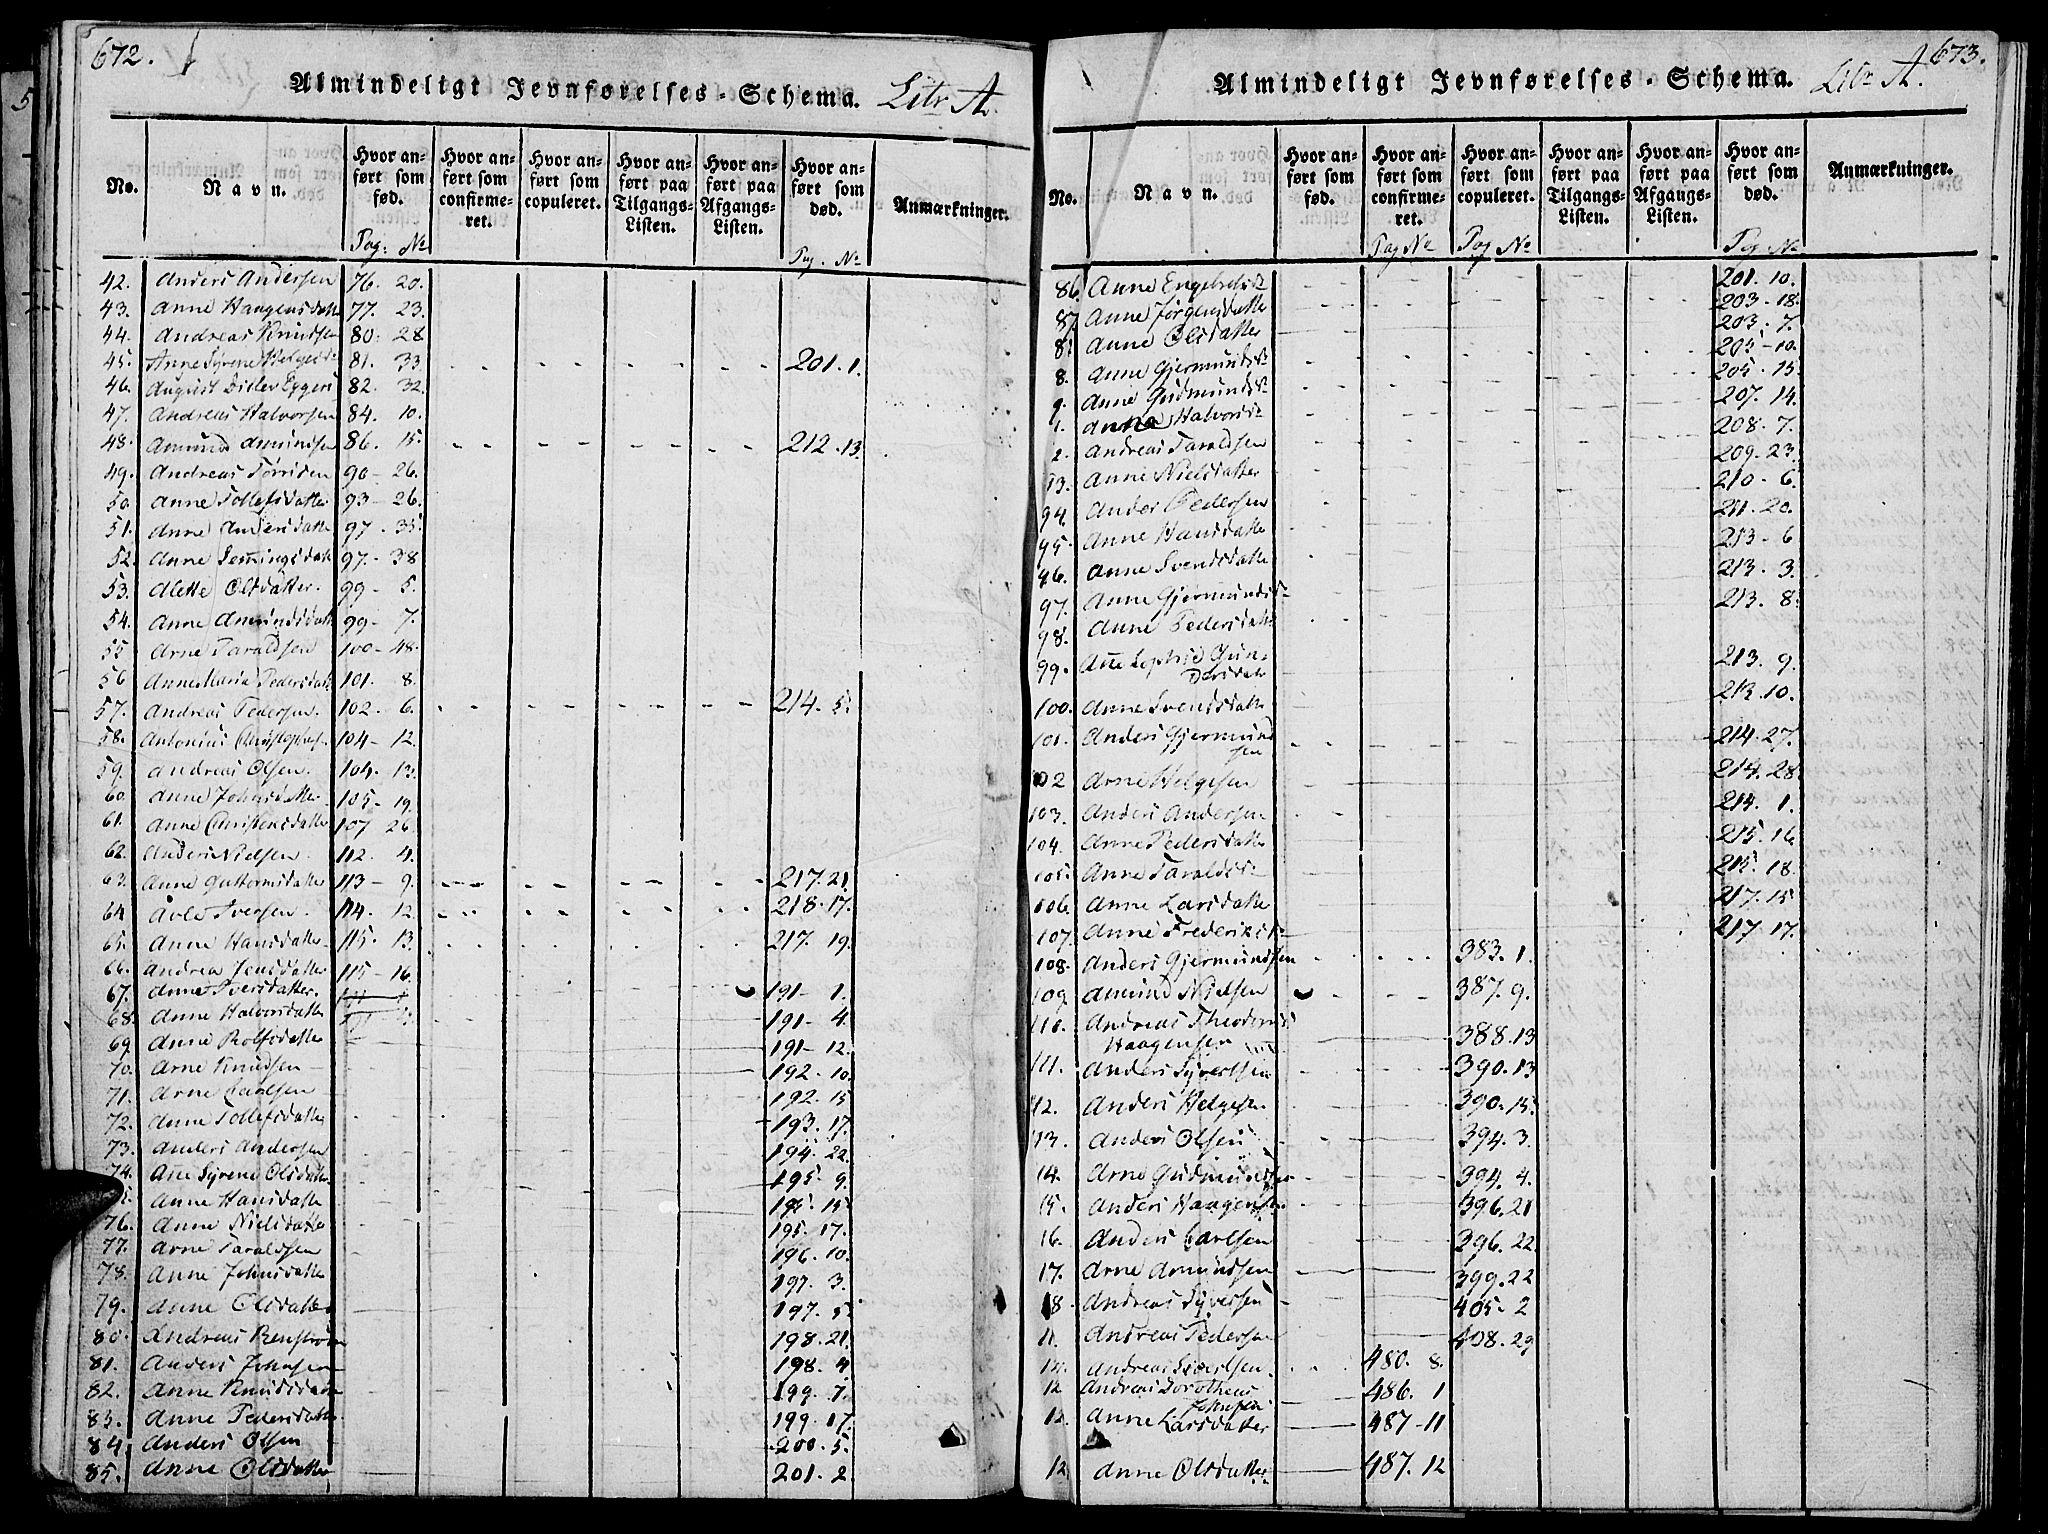 672.
Almindeligt Jevnførelses-Schema. Litr A.
No. Navn. Hvor anført som fød. Hvor anført som confirmeret. Hvor anført som copuleret. Hvor anført paa Tilgangs-Listen. Hvor anført paa Afgangs-Listen. Hvor anført som død. Anmærkninger.
Pag: No Pag. No
42. Anders Andersen 76. 20.
43. Anne Haagensdatter 77. 23.
44. Andreas Knudsen 80. 28
45. Anne Syrene Helgesdr 81. 33 201. 1.
46. August Ditlev Eggers 82. 32.
47. Andreas Halvorsen 84. 10.
48. Amund Amundsen 86. 15. 212. 13.
49. Andreas 90 - 26.
50. Anne Tollefsdatter 93 - 26.
51. Anne Andersdatter 97 - 35.
52. Anne 97 - 38
53. Alette Olsdatter. 99 - 5.
54. Anne Amundsdatt 99 - 7.
55 Arne Taraldsen 100 - 48.
56 Anne Maria Pedersdatt 101. 8.
57. Andreas Pedersen. 102 - 6. 214. 5.
58. Antonius Christophers. 104 - 12.
59. Andreas Olsen. 104. 13.
60. Anne Johnsdatter 105 - 19.
61. Anne Christensdatter 107 26.
62. Anders Nielsen. 112. 4.
63. Anne Guttormsdatter 113 - 9. 217. 21.
64 Iversen. 114. 12. 218. 17.
65. Anne Hansdatter 115. 13. 217. 19.
66. Andrea Jensdatter 115 - 16.
67. Anne Iversdatter. 191 - 1.
68. Anne Halvorsdatter 191 - 4.
69. Anne Rolfsdatter 191 - 12.
70. Arne Knudsen 192. 10.
71. Arne Carlsen 192. 15
72. Anne Tollefsdatter 193. 17.
73. Anders Andersen 194. 22.
74. Ane Syrene Olsdatter 195. 9.
Anne Hansdatter 195. 15.
76. Anne Nielsdatter 195. 17.
77. Arne Taraldsen 196. 10.
78. Anne Johnsdatter 197. 3.
79. Anne Olsdatter 197. 5.
80. Andreas 198. 21.
81. Anders Johnsen 198. 4
82. Anne Knudsdatter 199. 7.
83. Anne Pedersdatter 199. 17.
84. Anders Olsen 200. 5.
85. Anne Olsdatter 201. 2.
673.
Almindeligt Jevnførelses-Schema. Litr A.
No. Navn. Hvor anført som fød. Hvor anført som confirmeret. Hvor anført som copuleret. Hvor anført paa Tilgangs-Listen. Hvor anført paa Afgangs-Listen. Hvor anført som død. Anmærkninger.
Pag No Pag No Pag No
86 Anne Engebretsdr 201. 10.
87. Anne Jørgensdatter 203 - 18.
8. Anne Olsdatter 203. 7.
8. Anne Gjermundsdr 205 - 10.
9. Anne Gudmundsdr 205. 15.
1. Anna Halvorsdr 207. 14.
2. Andreas Taraldsen 208. 7.
13. Anne Nielsdatter 209. 23.
94. Anders Pedersen 210 - 6.
95. Anne Hansdatter 211. 20.
96. Anne Svendsdatter 213 - 6
97. Anne Gjermundsdr 213. 3.
98. Anne Pedersdatter 213. 8.
99. Ane Sophie Gun-
dersdatter 213. 9.
100. Anne Svendsdatter 213. 10.
101. Anders Gjermund
sen 214. 27.
102 Arne Helgesen 214. 28.
103. Anders Andersen 214. 1.
104. Anne Pedersdatter 215. 16.
105. Anne Taraldsdr 215. 18.
106. Anne Larsdatter 217. 15
107. Anne Frederiksdr 217. 17.
108. Anders Gjermundsen 383. 1.
109. Amund Nielsen 387. 9.
110. Andreas Theodorus
Haagensen 388. 13
111. Anders Syvertsen 390. 13
12. Anders Helgesen 390. 15.
13. Anders Olsen 394. 3.
14. Arne Gudmundsen 394. 4.
15. Anders Haagensen 396. 21
16. Anders Carlsen 396. 22.
17. Arne Amundsen 399. 22
18. Andreas Syversen 405. 2
11. Andreas Pedersen 408. 29
12. Andreas 480. 8.
12 Andreas Dorotheus
Johnsen 486. 1
12. Anne Larsdatter 487 - 11
12. Anne Olsdatter 487. 12